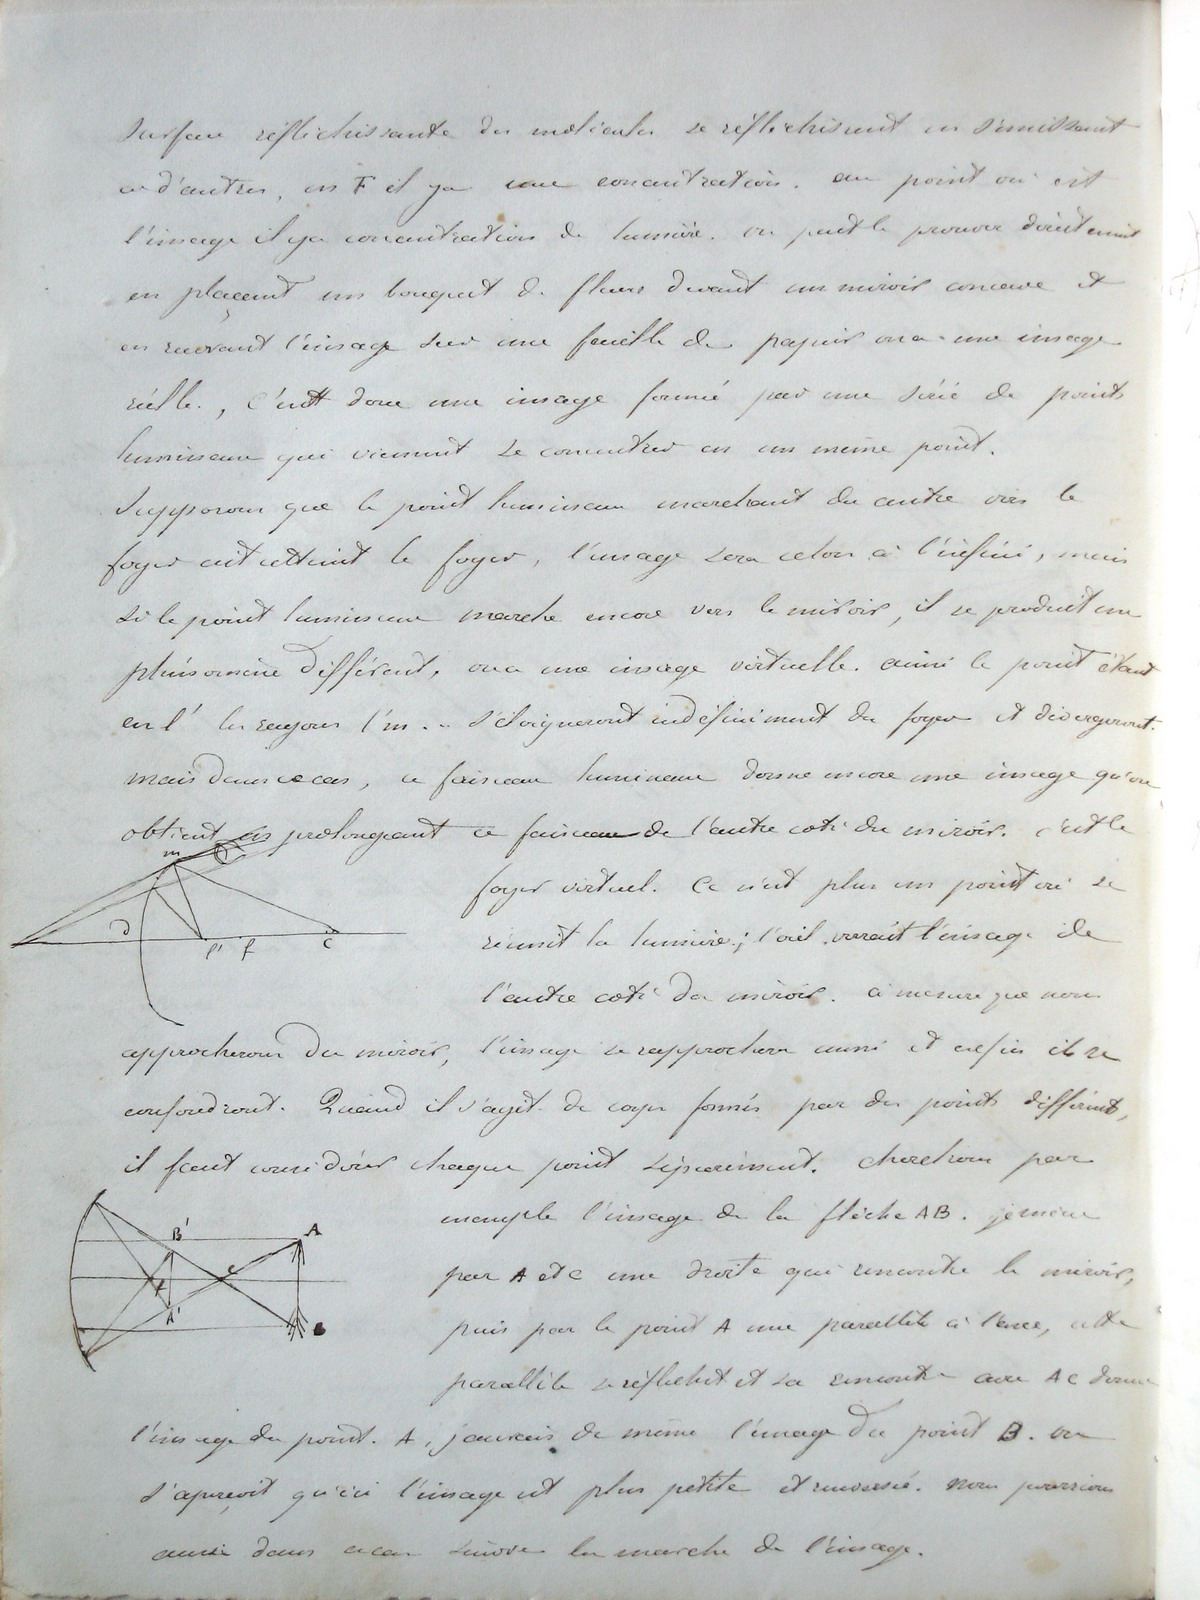 surface réfléchissante des molécules se réfléchissent en s'unissant
à d'autres, en F il y a une concentration. au point où est
l'image il y a concentration de lumière. on peut le prouver directement
en plaçant un bouquet de fleurs devant un miroir concave et
en recevant l'image sur une feuille de papier on a une image
réelle., c'est donc une image formé par une série de points
lumineux qui viennent se concentrer en un même point.
Supposons que le point lumineux marchant du centre vers le
foyer ait atteint le foyer, l'image sera alors à l'infini, mais
si le point lumineux marche encore vers le miroir, il se produit un
phénomène différent. on a une image virtuelle. ainsi le point étant
en l' les rayons l'm s'éloigneront indéfiniment du foyer et divergeront.
mais dans ce cas, ce faisceau lumineux donne encore une image qu'on
obtient en prolongeant ce faisceau de l'autre coté du miroir. c'est le
foyer virtuel. Ce n'est plus un point où se
réunit la lumière; l'œil verrait l'image de
l'autre coté du miroir. à mesure que nous
m
D
l' f C
approcherons du miroir, l'image se rapprochera aussi et enfin ils se
confondront. Quand il s'agit de corps formés par des points différents,
il faut considérer chaque point séparément. cherchons par
exemple l'image de la flèche AB. je mène
par A et C une droite qui rencontre le miroir,
puis par le point A une parallèle à l'axe, cette
parallèle se réfléchit et sa rencontre avec AC donne
B' A
c
f
A' B
l'image du point. A, j'aurais de même l'image du point B. on
s'aperçoit qu'ici l'image est plus petite et renversée. nous pourrions
aussi dans ce cas suivre la marche de l'image.